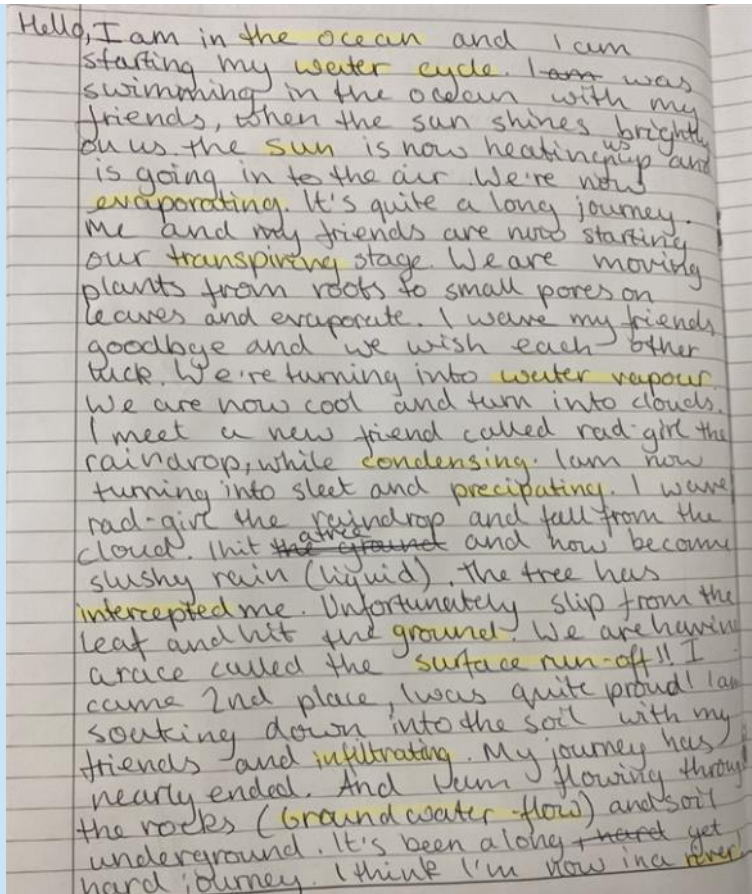 Hello, I am in the ocean and I am
starting my water cycle. I am was
swimming in the ocean with my
friends, when the sun shines brightly
on us. the sun is now heating us up and
is going in to the air. We're now
evaporating. It's quite a long journey.
Me and my friends are now starting
our transpiring stage. We are moving
plants from roots to small pores on
leaves and evaporate. I wave my friends
goodbye and we wish each other
luck. We're turning into water vapour.
We are now cool and turn into clouds.
I meet a new friend called rad-girl the
raindrop, while condensing. I am now
turning into sleet and precipating. I wave
rad-girl the raindrop and fall from the
cloud. I hit the ground a tree and now become
slushy rain (liquid). The tree has
intercepted me. Unfortunately slip from the
leaf and hit the ground. We are havin
a race called the surface run-off!! I
came 2nd place, I was quite proud! I am
soaking down into the soil with my
friends and infiltrating. My journey has
nearly ended. And I am flowing throug
the rocks (Groundwater flow) and soil
underground. It's been a long + hard yet
hard journey. I think I'm now in a river!